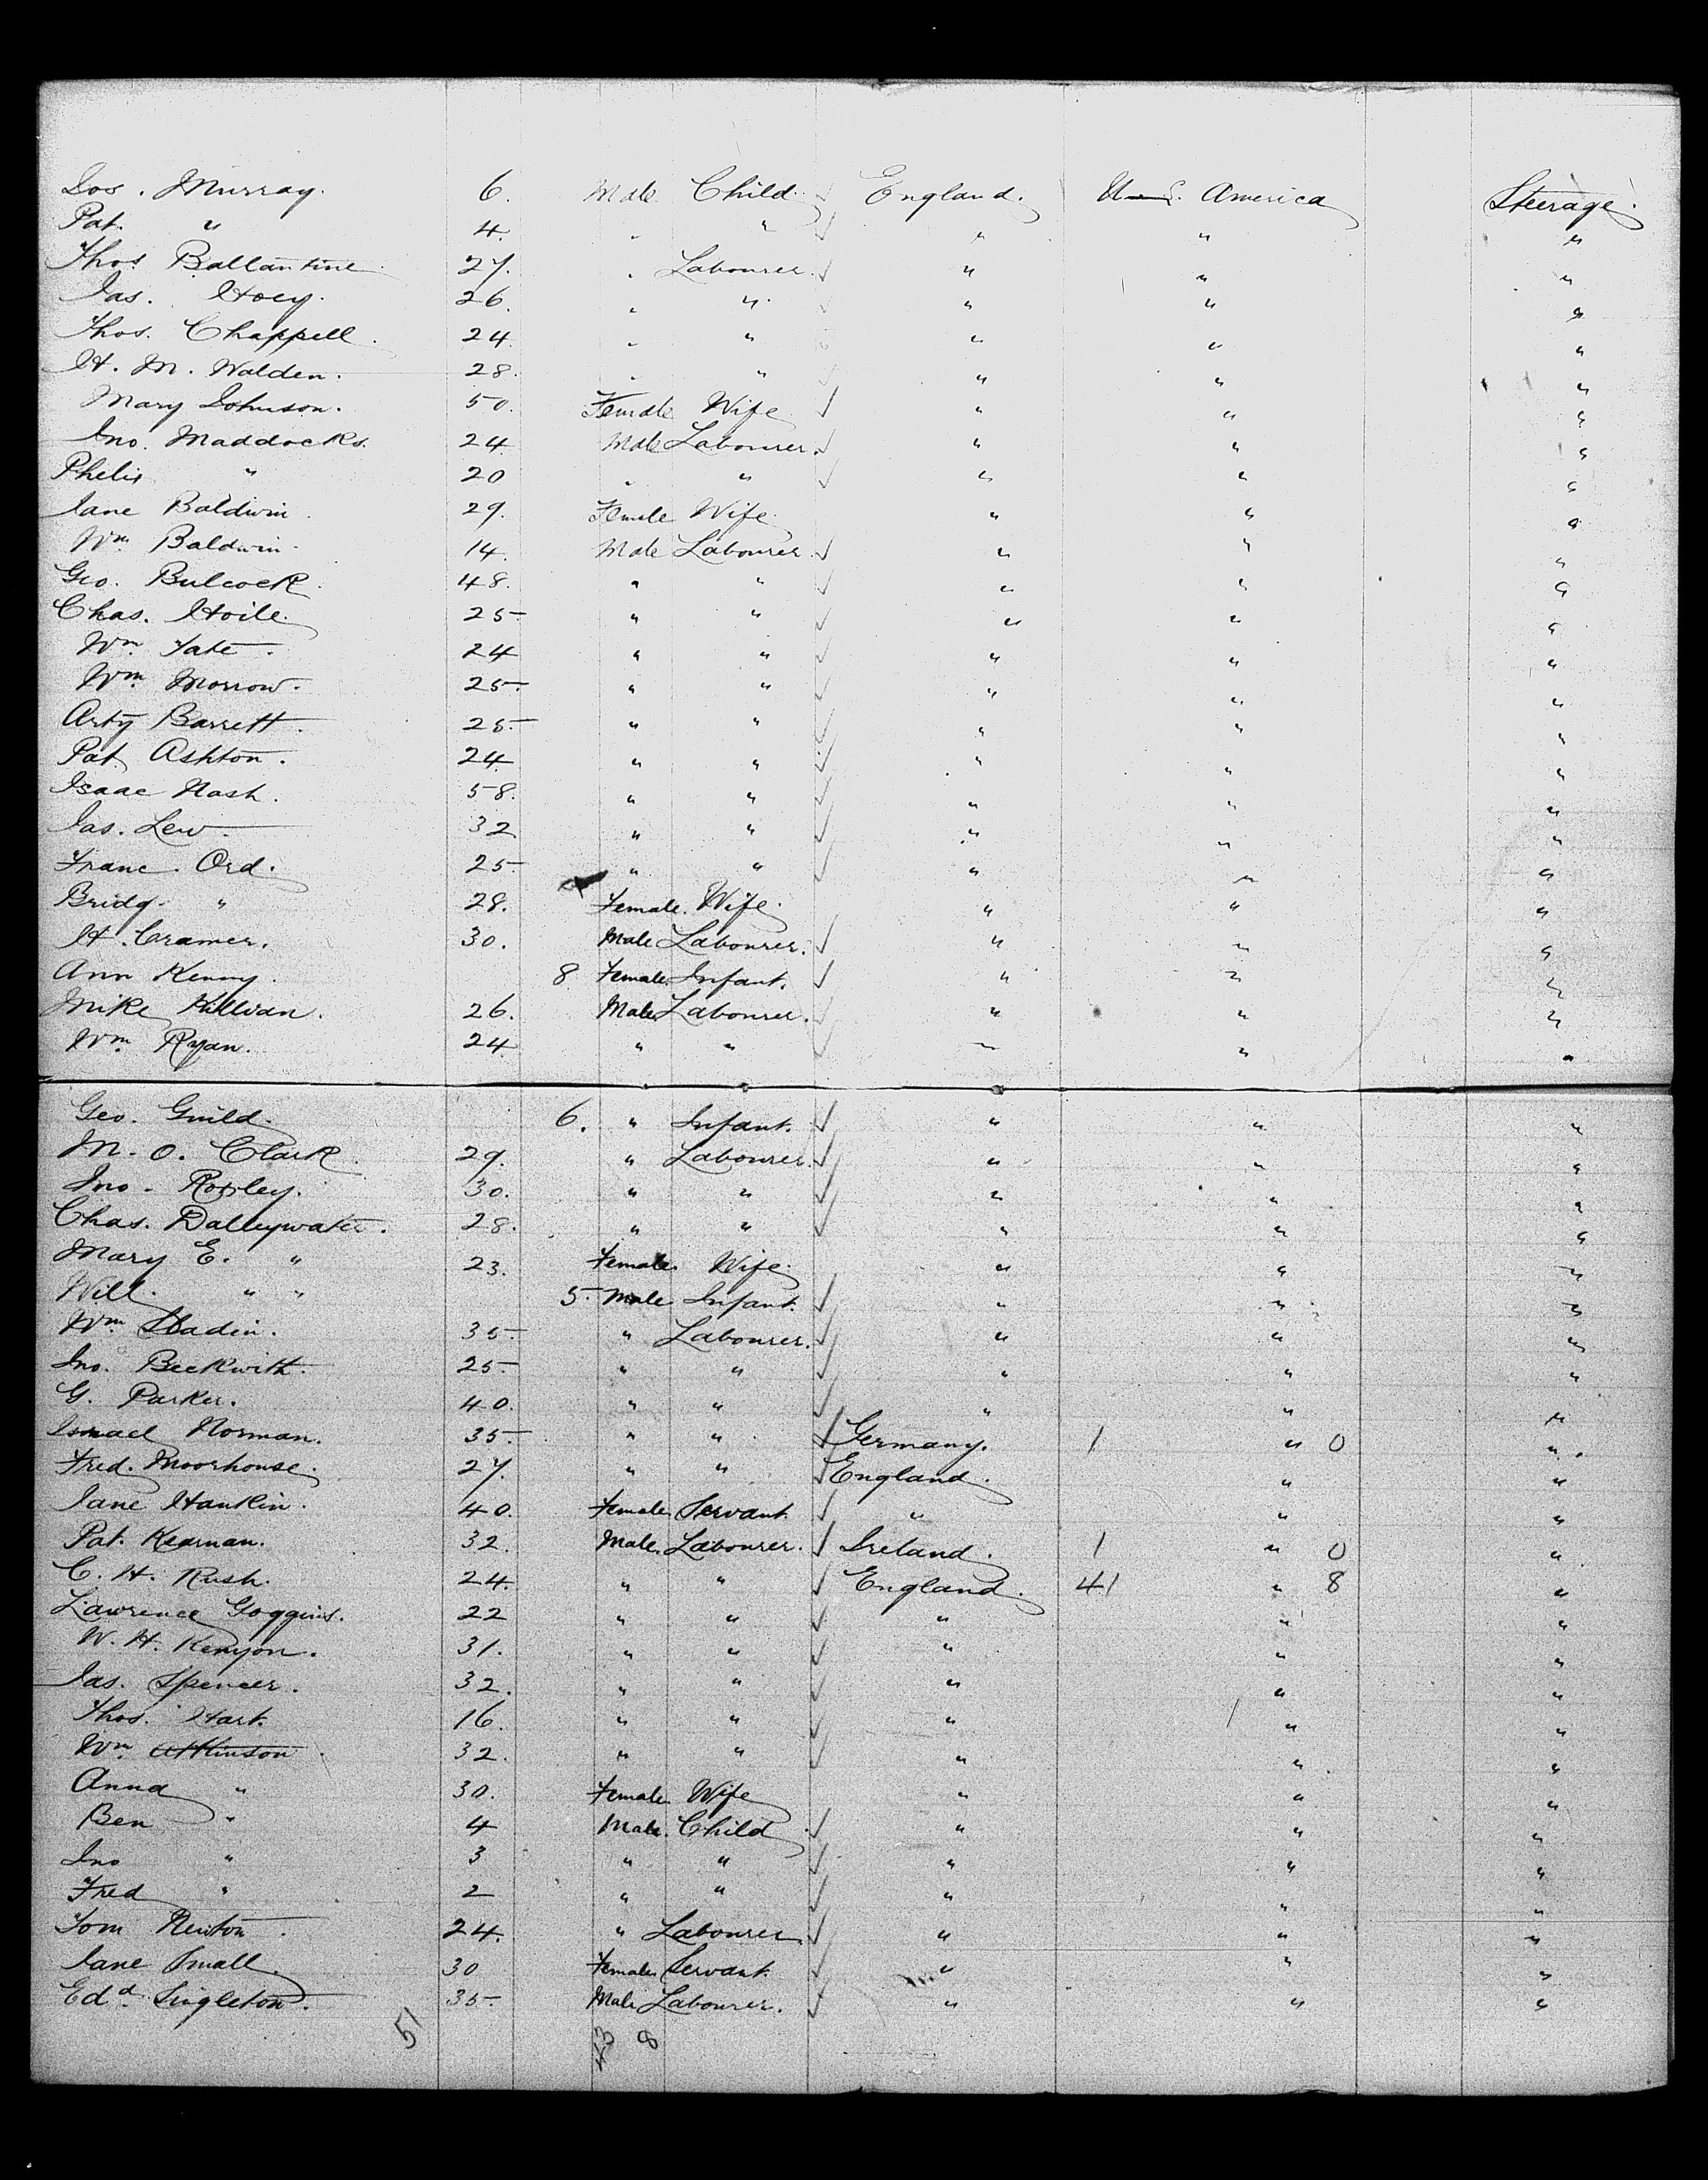 Jos. Murray. 6. Male Child. ✓ England. U.S. America Steerage.
Pat. " 4. " " ✓ " " "
Thos. Ballantine. 27. " Labourer. ✓ " " "
Jas. Hoey. 26. " " ✓ " " "
Thos. Chappell. 24. " " " " "
H. M. Walden. 28. " " ✓ " " "
Mary Johnson. 50. Female Wife. ✓ " " "
Jno. Maddocks. 24. Male Labourer. ✓ " " "
Phelix " 20 " " ✓ " " "
Jane Baldwin. 29. Female Wife. " " "
Wm. Baldwin. 14. Male Labourer. ✓ " " "
Geo. Bulcock. 48. " " ✓ " " "
Chas. Hoile. 25. " " ✓ " " "
Wm. Tate. 24 " " ✓ " " "
Wm. Morrow. 25. " " ✓ " " "
Arty Barrett. 25. " " ✓ " " "
Pat. Ashton. 24. " " ✓ " " "
Isaac Nash. 58. " " ✓ " " "
Jas. Lew. 32. " " ✓ " " "
Franc. Ord. 25. " " ✓ " " "
Bridg. " 28. Female. Wife. " " "
H. Cramer. 30. Male Labourer. ✓ " " "
Ann Kenny. 8 Female. Infant. ✓ " " "
Mike Killian. 26. Male Labourer. ✓ " " "
Wm. Ryan. 24. " " ✓ " " "
Geo. Guild. 6. " Infant. ✓ " " "
M. O. Clark. 29. " Labourer. ✓ " " "
Jno. 30. " " ✓ " " "
Chas. Dalleywater. 28. " " ✓ " " "
Mary E. " 23. Female. Wife. " " "
Will. " " 5. Male Infant. ✓ " " "
Wm. 35. " Labourer. ✓ " " "
Jno. Beckwith. 25. " " ✓ " " "
G. Parker. 40. " " ✓ " " "
Norman. 35. " " ✓ Germany. 1 " 0 "
Fred. Moorhouse. 27. " " ✓ England. " "
Jane Hankin. 40. Female. Servant. ✓ " " "
Pat. Kearnan. 32. Male. Labourer. ✓ Ireland. 1 " 0 "
C. H. Rush. 24. " " ✓ England. 41 " 8 "
Lawrence Goggins. 22 " " ✓ " " "
W. H. Kenyon. 31. " " ✓ " " "
Jas. Spencer. 32. " " ✓ " " "
Thos. Hart. 16. " " ✓ " " "
Wm. Attkinson. 32. " " ✓ " " "
Anna " 30. Female Wife " " "
Ben " 4 Male. Child ✓ " " "
Jno " 3 " " ✓ " " "
Fred " 2 " " ✓ " " "
Tom Newton. 24. " Labourer. ✓ " " "
Jane Small. 30 Female. Servant. ✓ " " "
Edd. Singleton. 35. Male Labourer. ✓ " " "
51 43 8